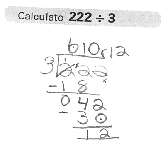 Calculate 222 ÷ 3
610r12
3 222
-18
042
- 30
12